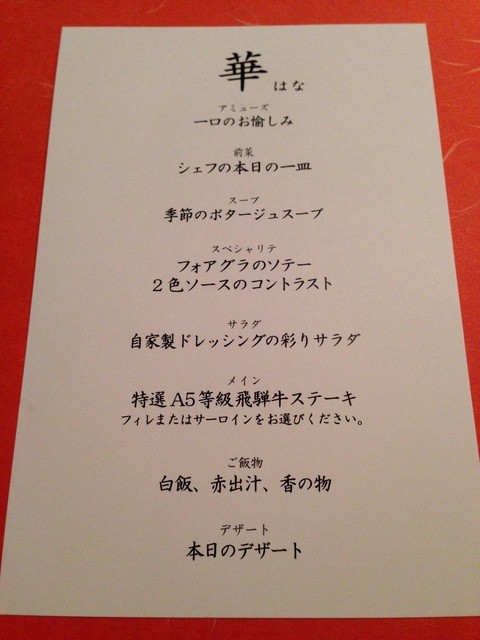 華 はな
アミューズ
一口のお愉しみ
前菜
シェフの本日の一皿
スープ
季節のポタージュスープ
スペシャリテ
フォアグラのソテー
２色ソースのコントラスト
サラダ
自家製ドレッシングの彩りサラダ
メイン
特選A5等級飛騨牛ステーキ
フィレまたはサーロインをお選びください。
ご飯物
白飯、赤出汁、香の物
デザート
本日のデザート